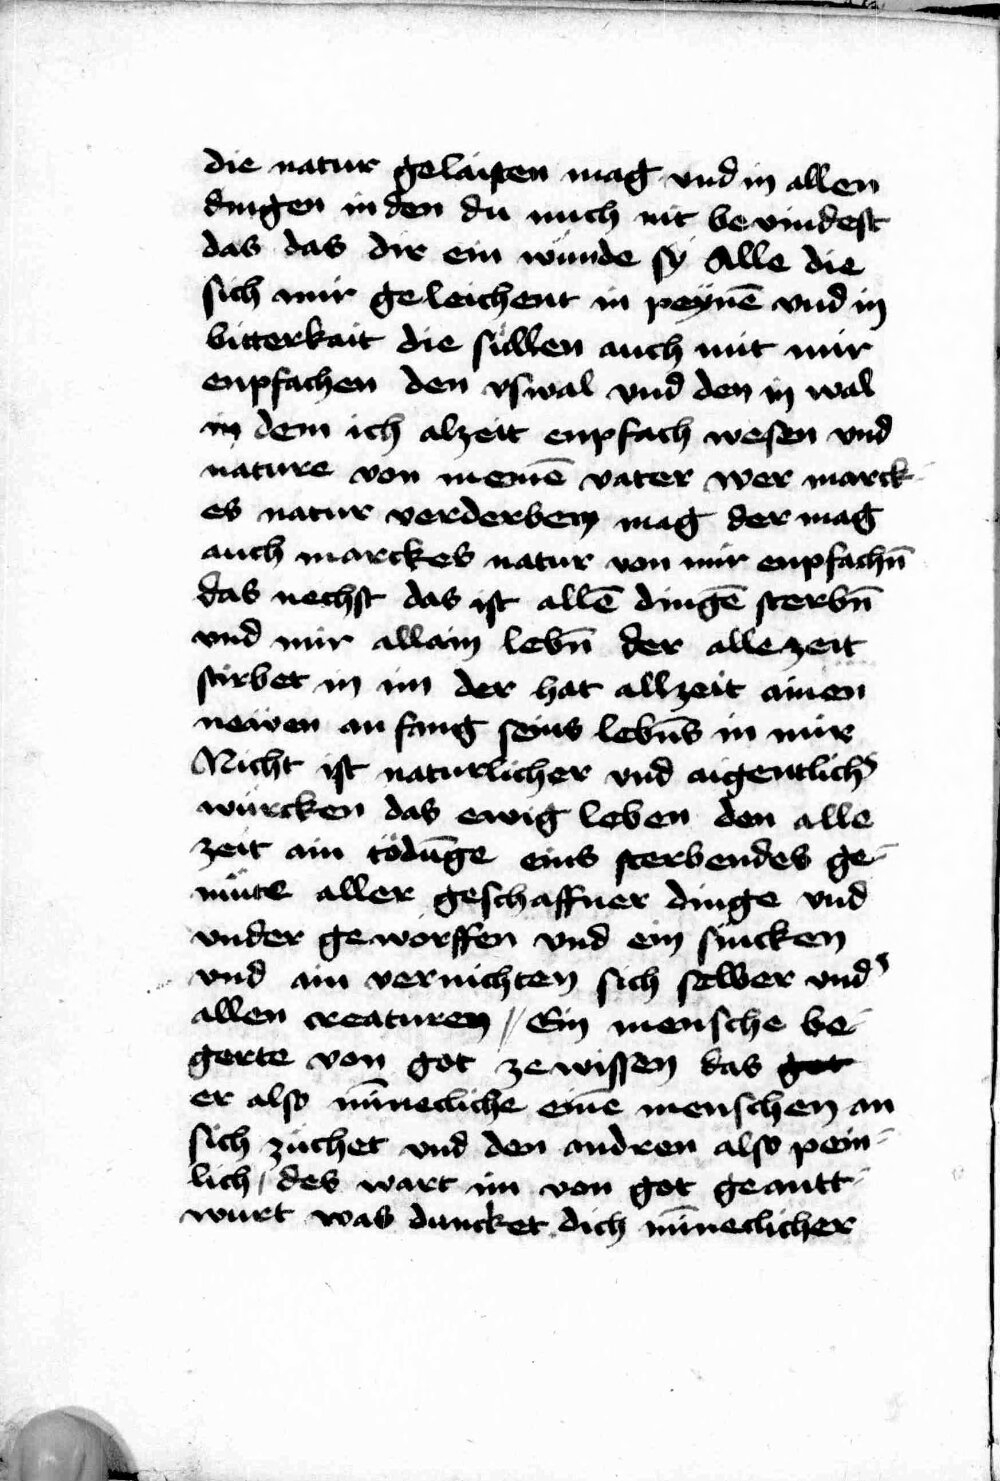 die natur gelaisten mag vnd in allen
dingen in den du mich nit bevindest
das das dir ein wunde sÿ Alle die
sich mir geleichent in peynē vnd in
bitterkait die süllen auch mit mir
enpfachen den vswal vnd den in wal
in dem ich alzeit enpfach wesen vnd
nature von meinē vater wer marck-
es natur verderben mag der mag
auch marckes natur von mir enpfachn̄
das nechst das ist allē dingē sterbn̄
vnd mir allain lebn̄ der alle zeit
stirbet in im der hat allzeit ainen
newen an fang seins lebn̄s in mir
Nicht ist naturlicher vnd aigentlich˜
würcken das ewig leben den alle
zeit ain tödūge eins sterbendes ge-
müte aller geschaffner dinge vnd
vnder geworffen vnd ein sincken
vnd ain vernichten sich selber vnd˜
allen creaturen // Ein mensche be-
gerte von got ze wissen das got
er also mī̄necliche einē menschen an
sich züchet vnd den andren also pein-
lich / des wart im von got geantt-
wurt was duncket dich mī̄neclicher